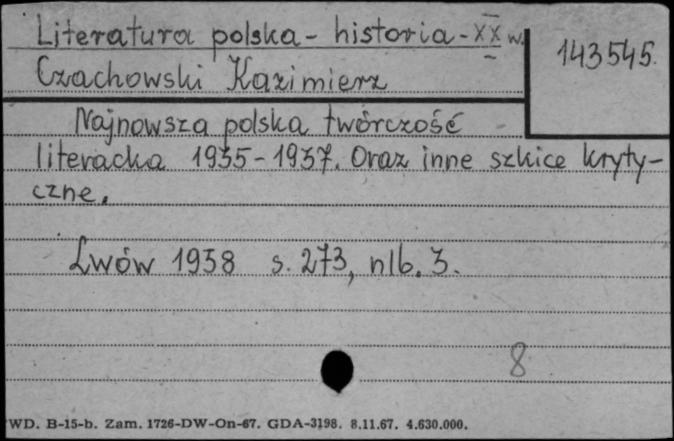 Literatura polska - historia - XX w.
143545.
Czachowski Kazimierz
Najnowsza polska twórczość
literacka 1935-1937. Oraz inne szkice kryty-
czne.
Lwów 1938 s. 273, nlb. 3.
8
WD. B-15-b. Zam. 1726-DW-On-67. GDA-3198. 8.11.67. 4.630.000.